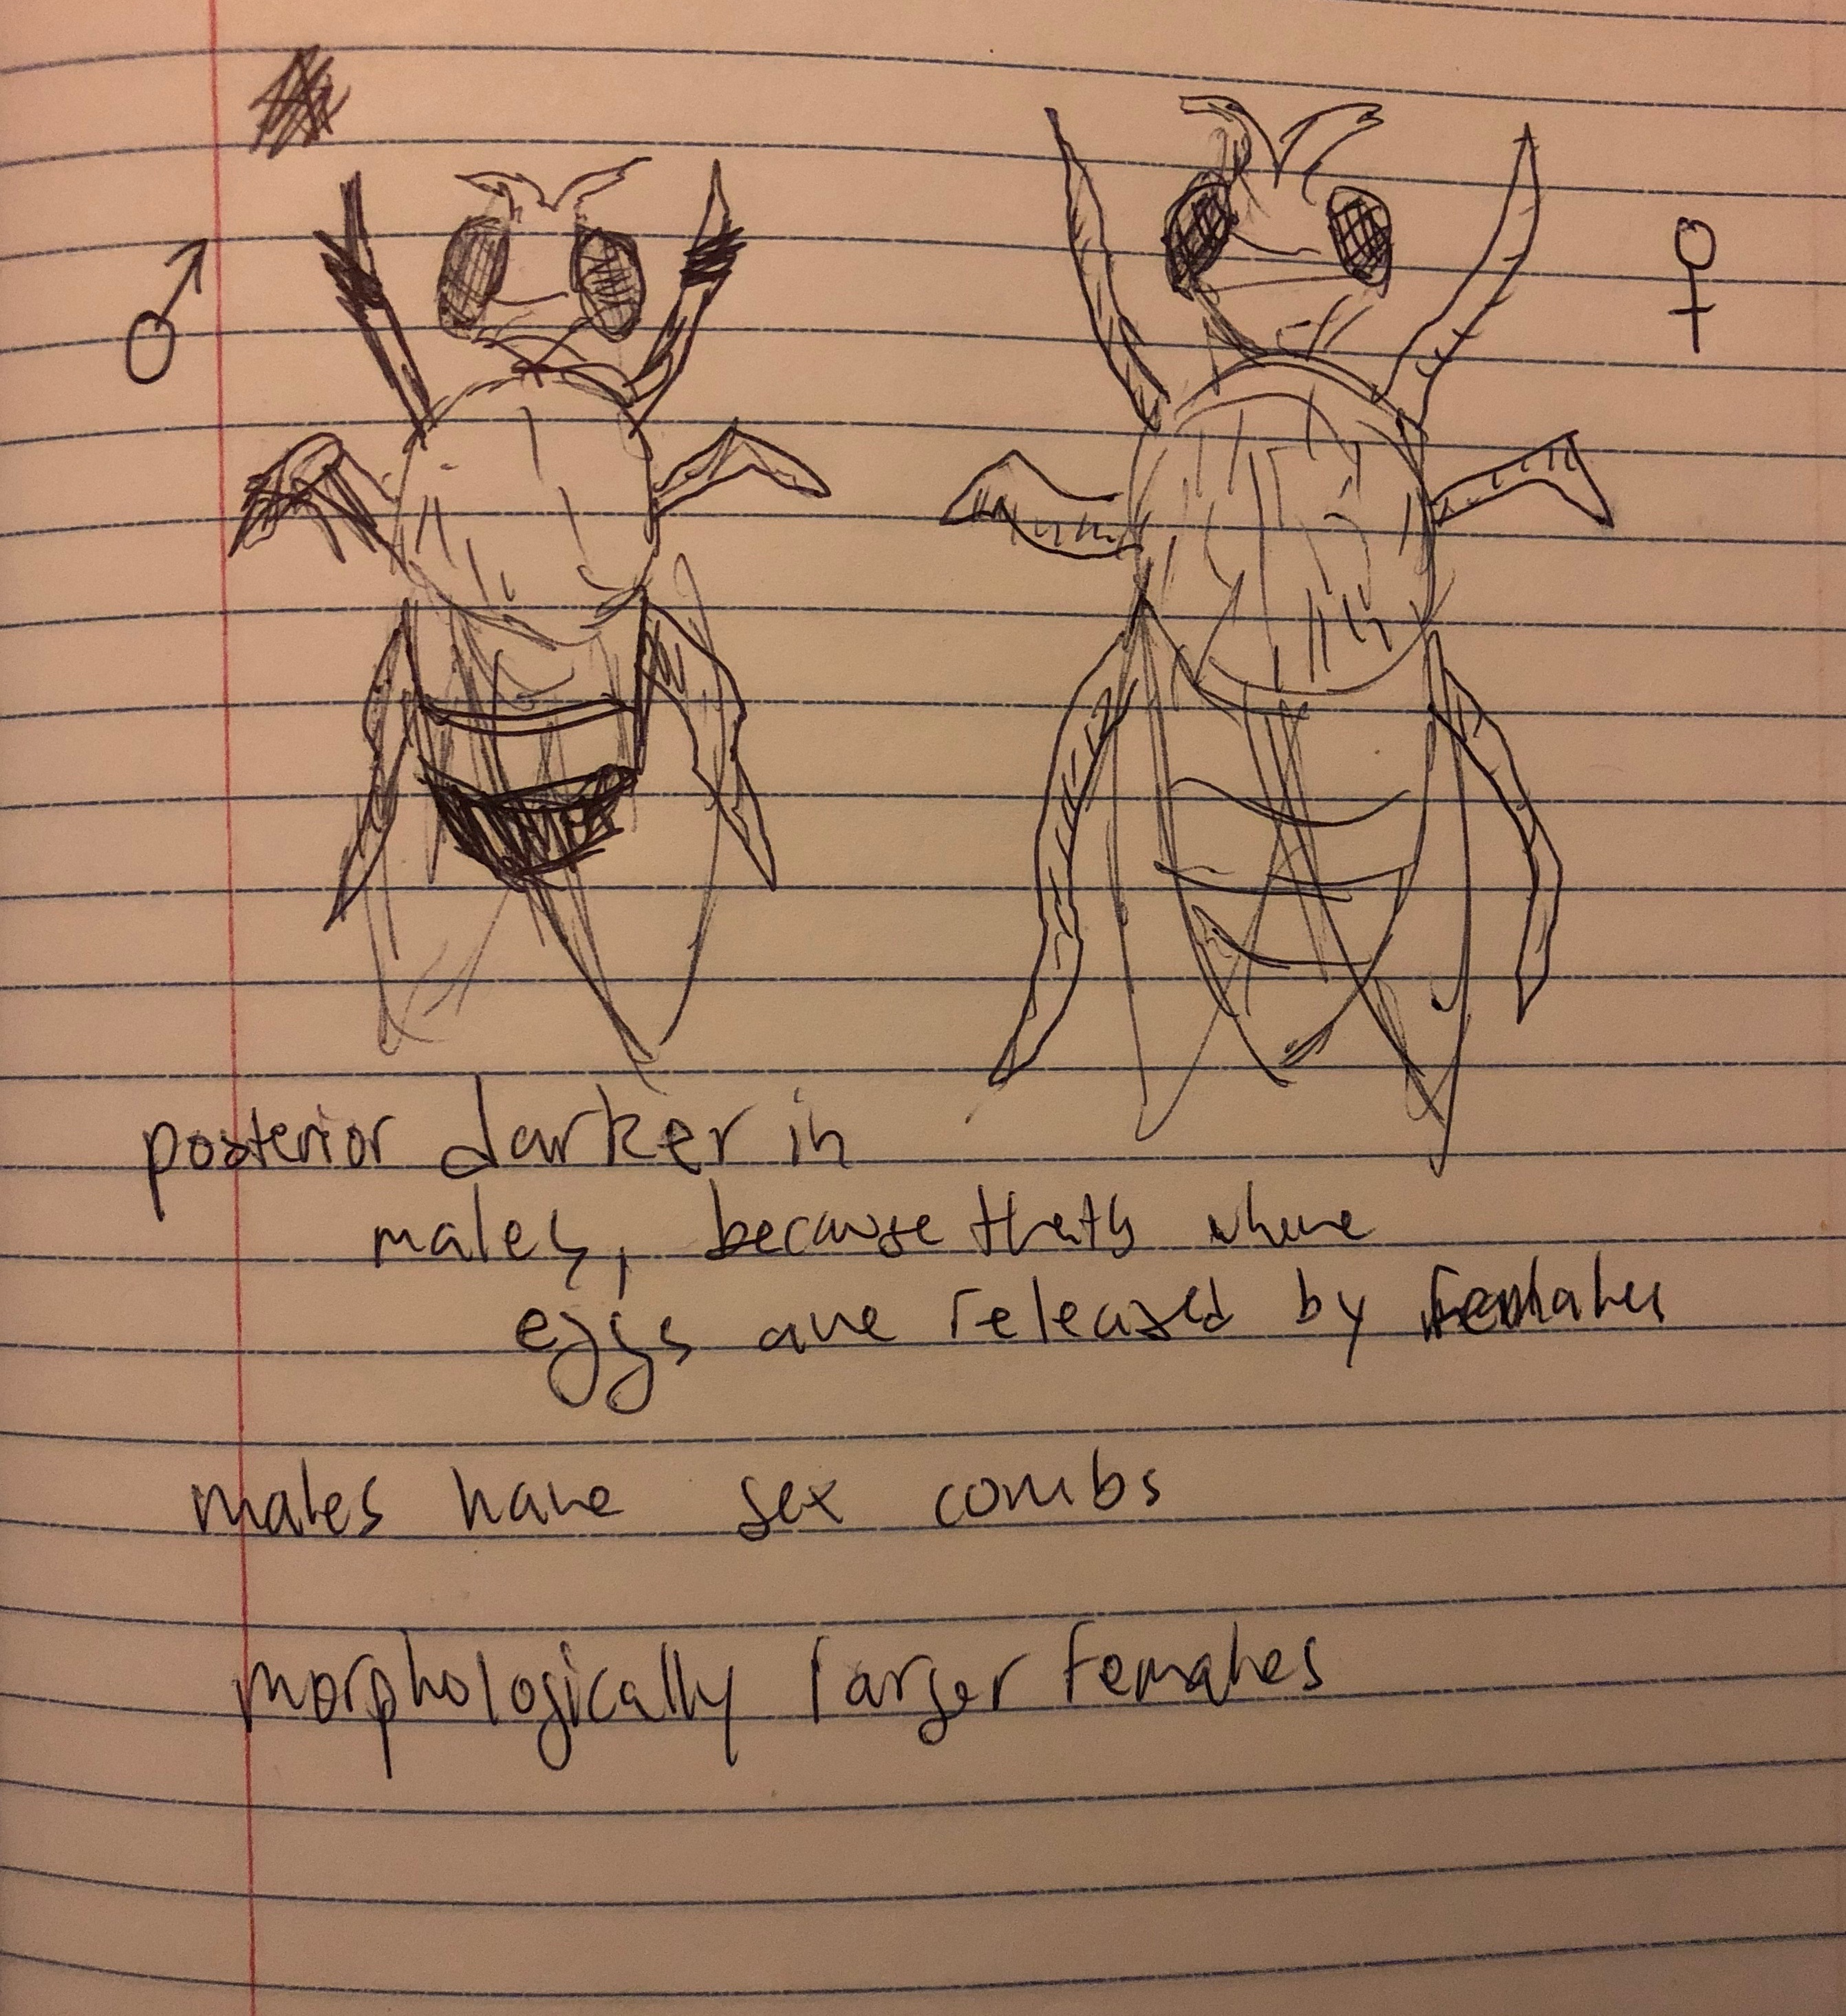 ♂
♀
posterior darker in
males, because thats where
eggs are released by females
males have sex combs
morphologically larger females